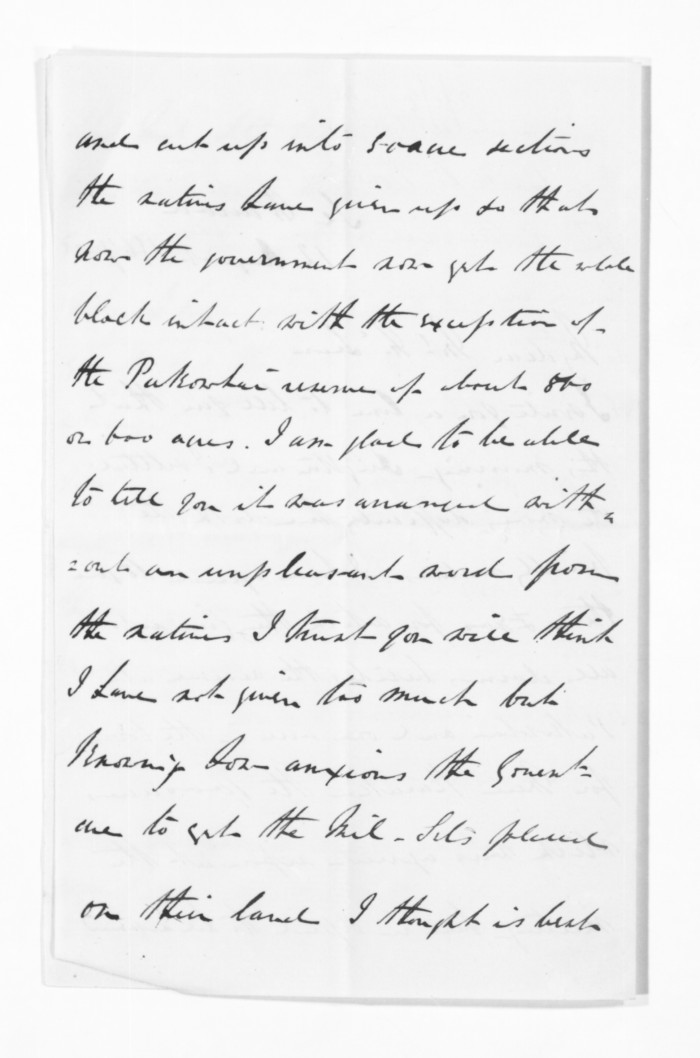 and cut up into 50 acre sections
the natives have given up so that
now the government now get the whole
block intact with the exception of
the Pukowhai reserve of about 500
or 600 acres. I am glad to be able
to tell you it was arranged with-
=out an unpleasant word from
the natives I trust you will think
I have not given too much but
Knowing how anxious the Govent-
are to get the Mil-Sets placed
on their land I thought is best